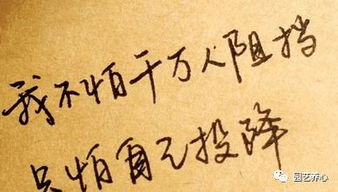 我不怕千万人阻挡
只怕自己投降
园艺养心